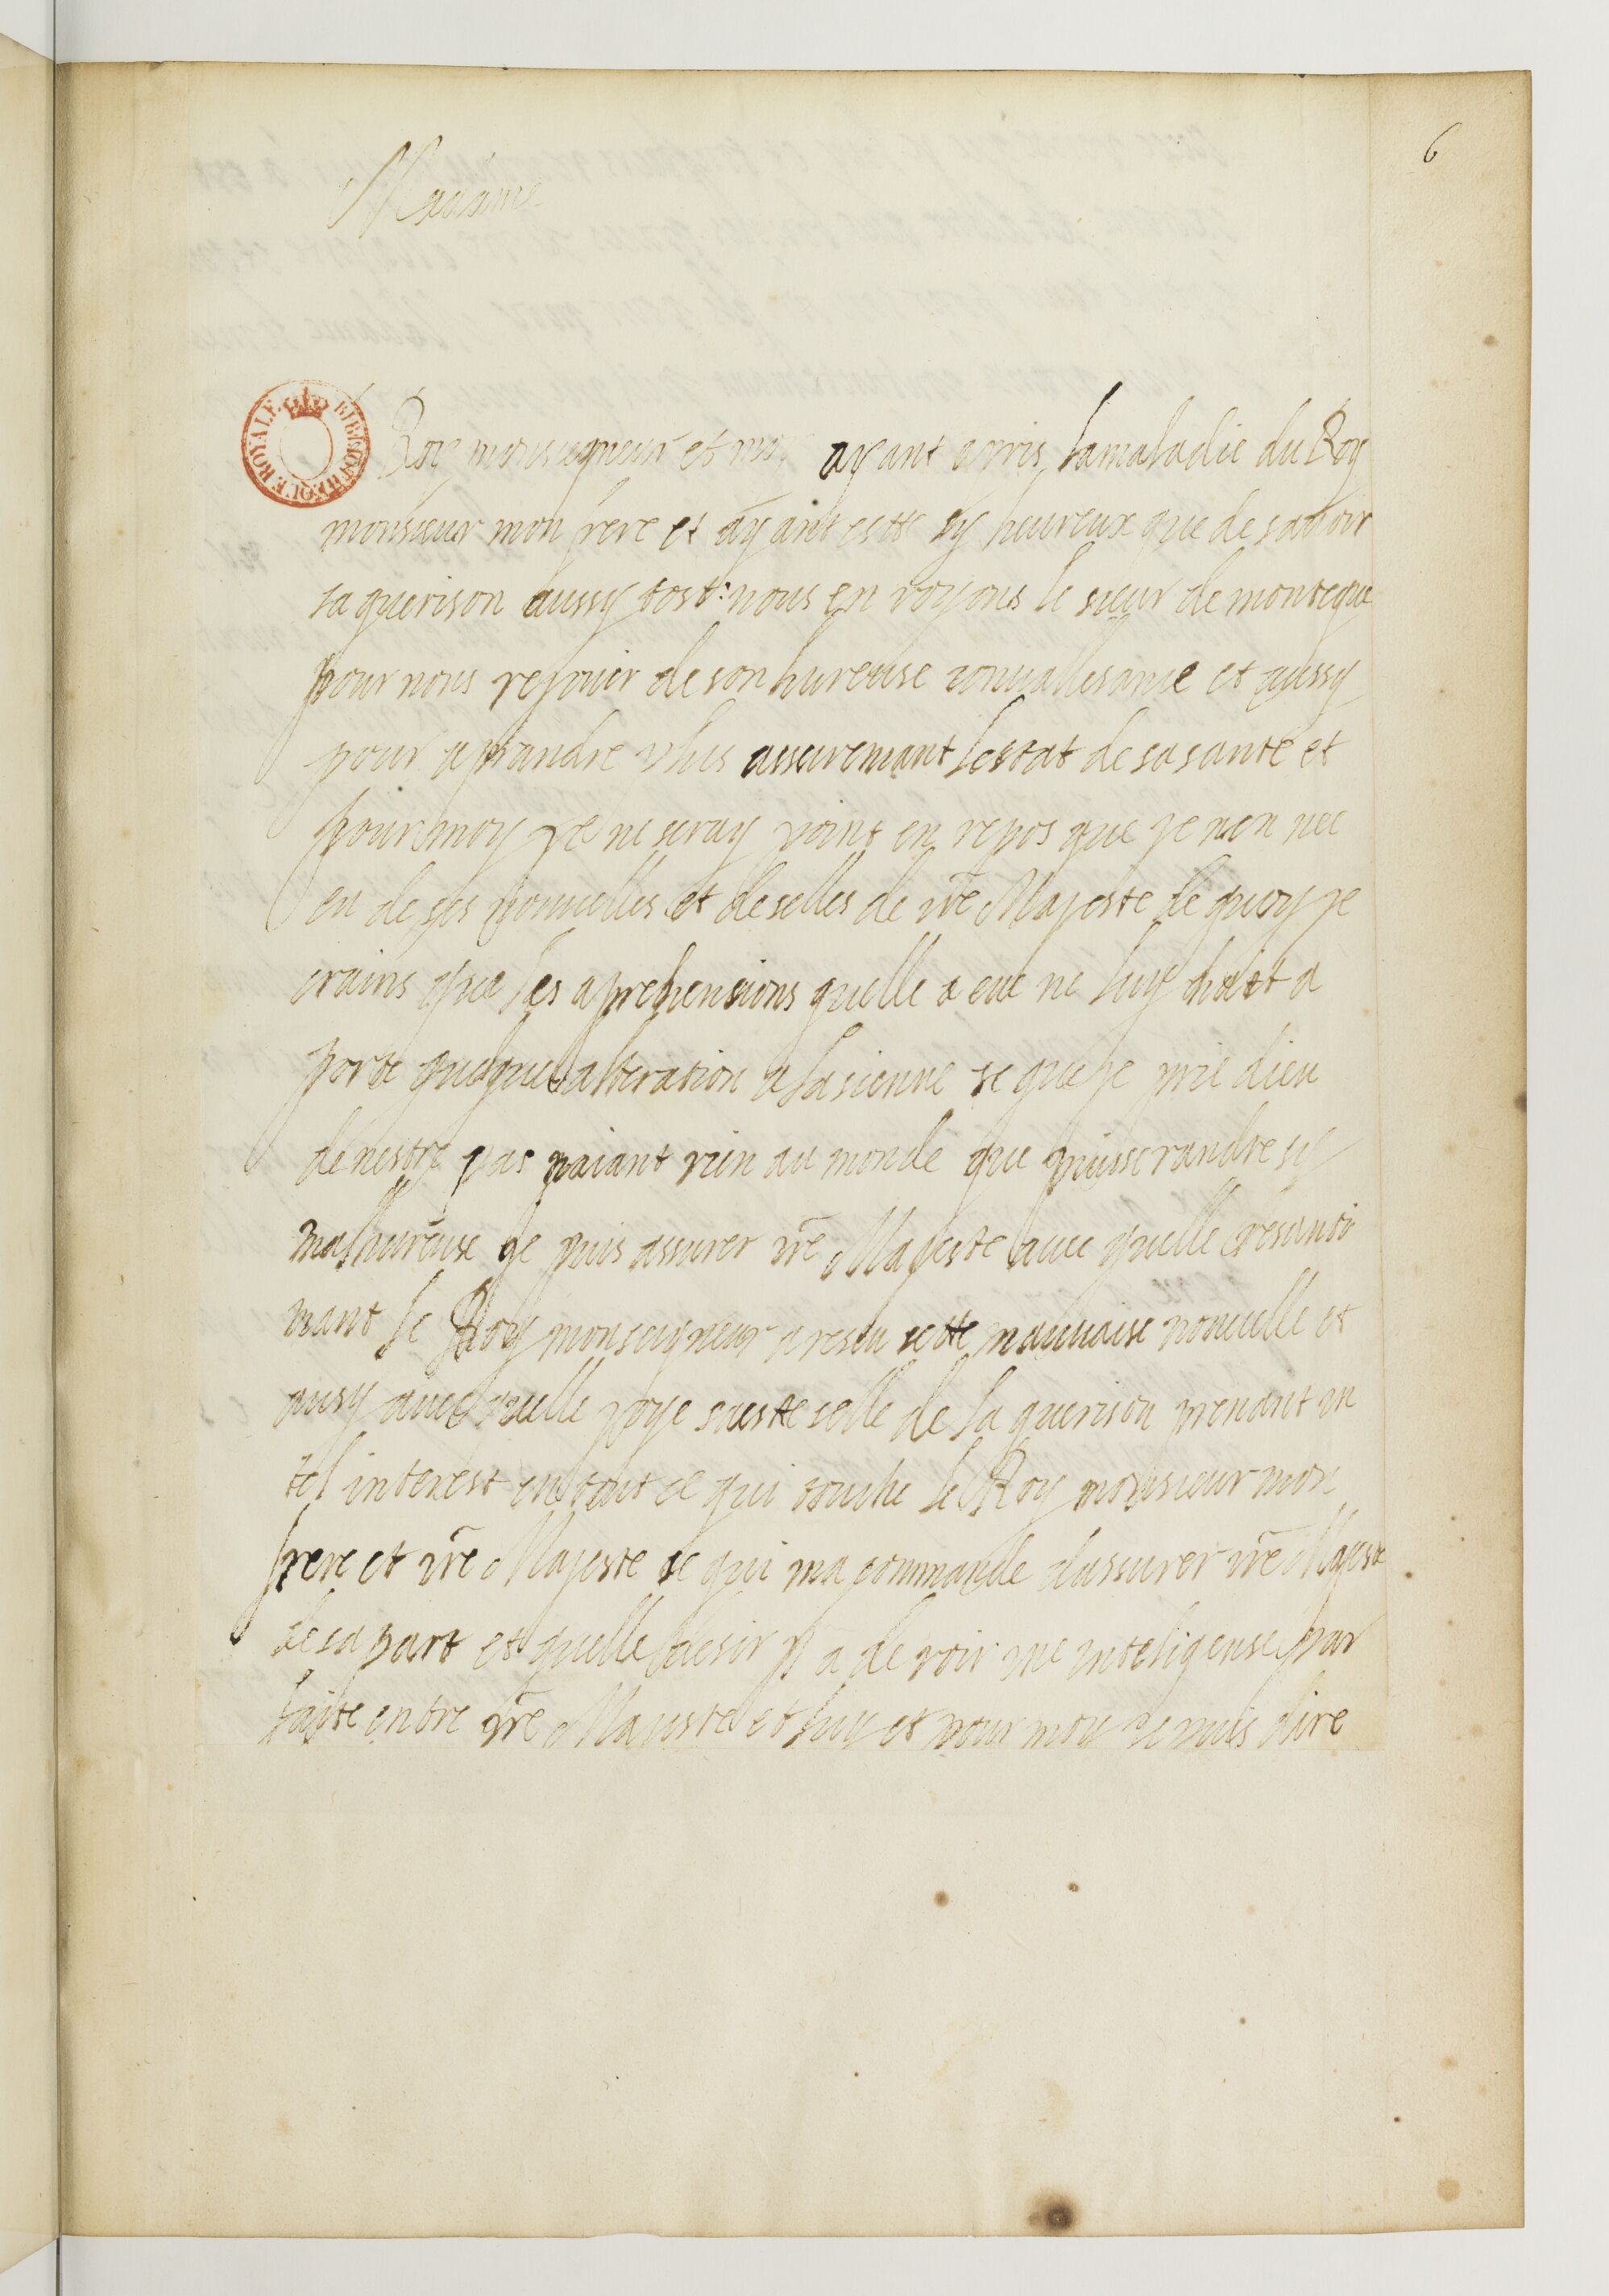 6
Madame
BIBLIOTHEQUE ROYALE
Roy monseigneur et moy ayant apris la maladie du Roy
monsieur mon frere et ayant estte sy heureux que de savoir
sa guerison aussy tost: nous en voyons le sieur de montegue
pour nous rejouir de son hureuse convallesanse et aussy
pour aprandre plus asseuremant lestat de sa santé et
pour moy je ne seray point en repos que je nen nee
eu de ses nouvelles et de selles de vre Majeste de quoy je
crains que les aprehensions quelle a eue ne luy et a
porte quelque alteration a la sienne se que je prie dieu
de nestre pas naiant rien au monde que puisse randre si
malhureuse je puis assurer vre Majeste avec quelle resanti
mant le Roy monseigneur a reseu sette mauvaise nouvelle et
ausy avec quelle joye s selle de la guerison prenant un
tel interest en tout ce qui touche le Roy monsieur mon
frere et vre Majeste se qui ma commande dassurer vre Majeste
de sa part et quelle desir il a de voir une inteligense par
faite entre vre Majeste et luy et pour moy je puis dire